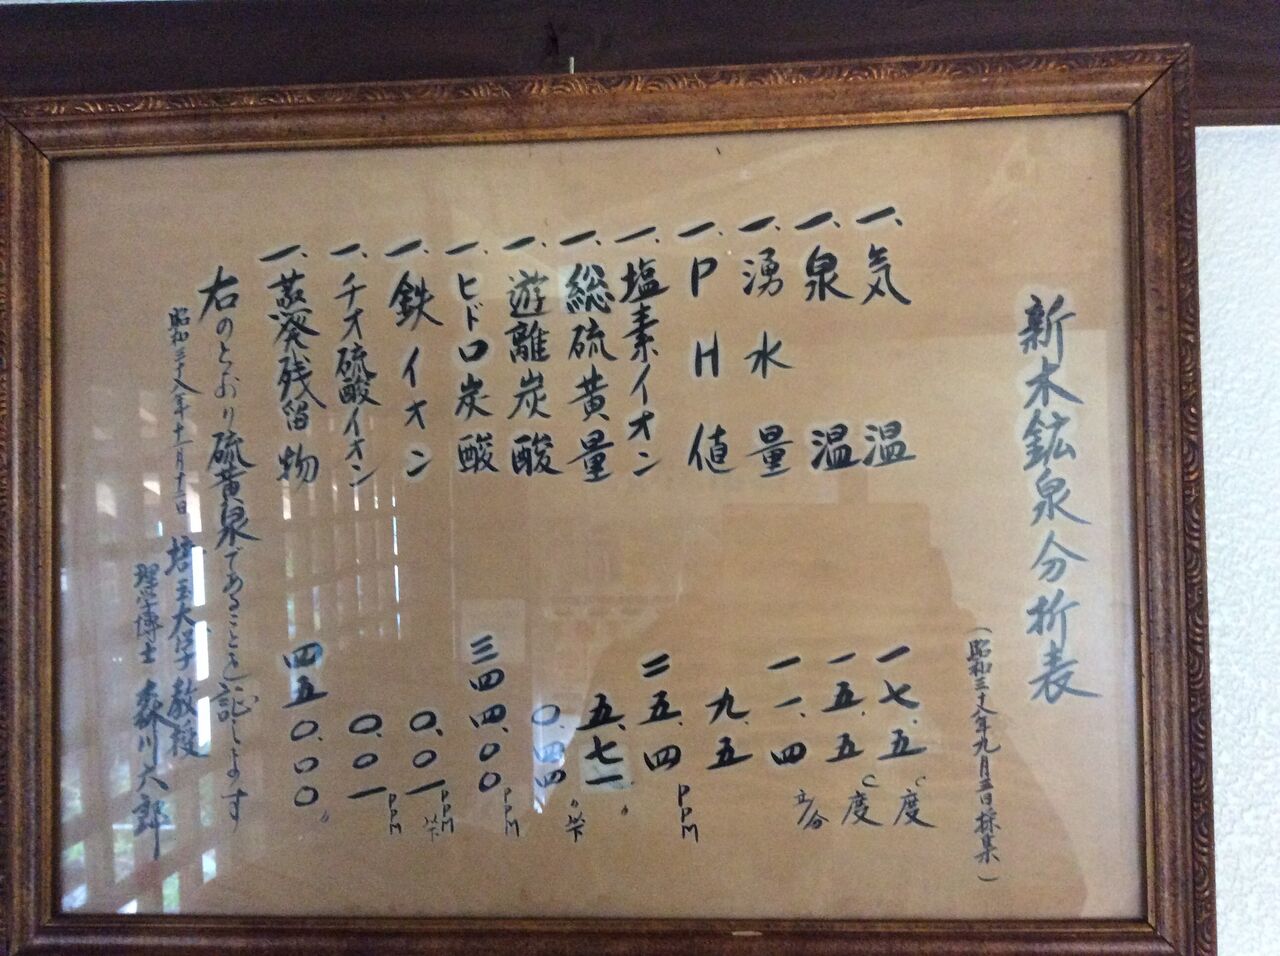 新木鉱泉分析表
(昭和三十八年九月五日採集)
一、気温 一七.五 C度
一、泉温 一五.五 C度
一、湧水量 一一.四 立/分
一、PH値 九.五
一、塩素イオン 二五.四 PPM
一、総硫黄量 五.七一 〃
一、遊離炭酸 〇.四四 〃以下
一、ヒドロ炭酸 三四四.〇〇 PPM
一、鉄イオン 〇.〇一 PPM以下
一、チオ硫酸イオン 〇.〇一 PPM
一、蒸発残留物 四五〇.〇〇 〃
右のとおり硫黄泉であることを証します
昭和三十八年十一月十二日 埼玉大学教授
理学博士 森川六郎